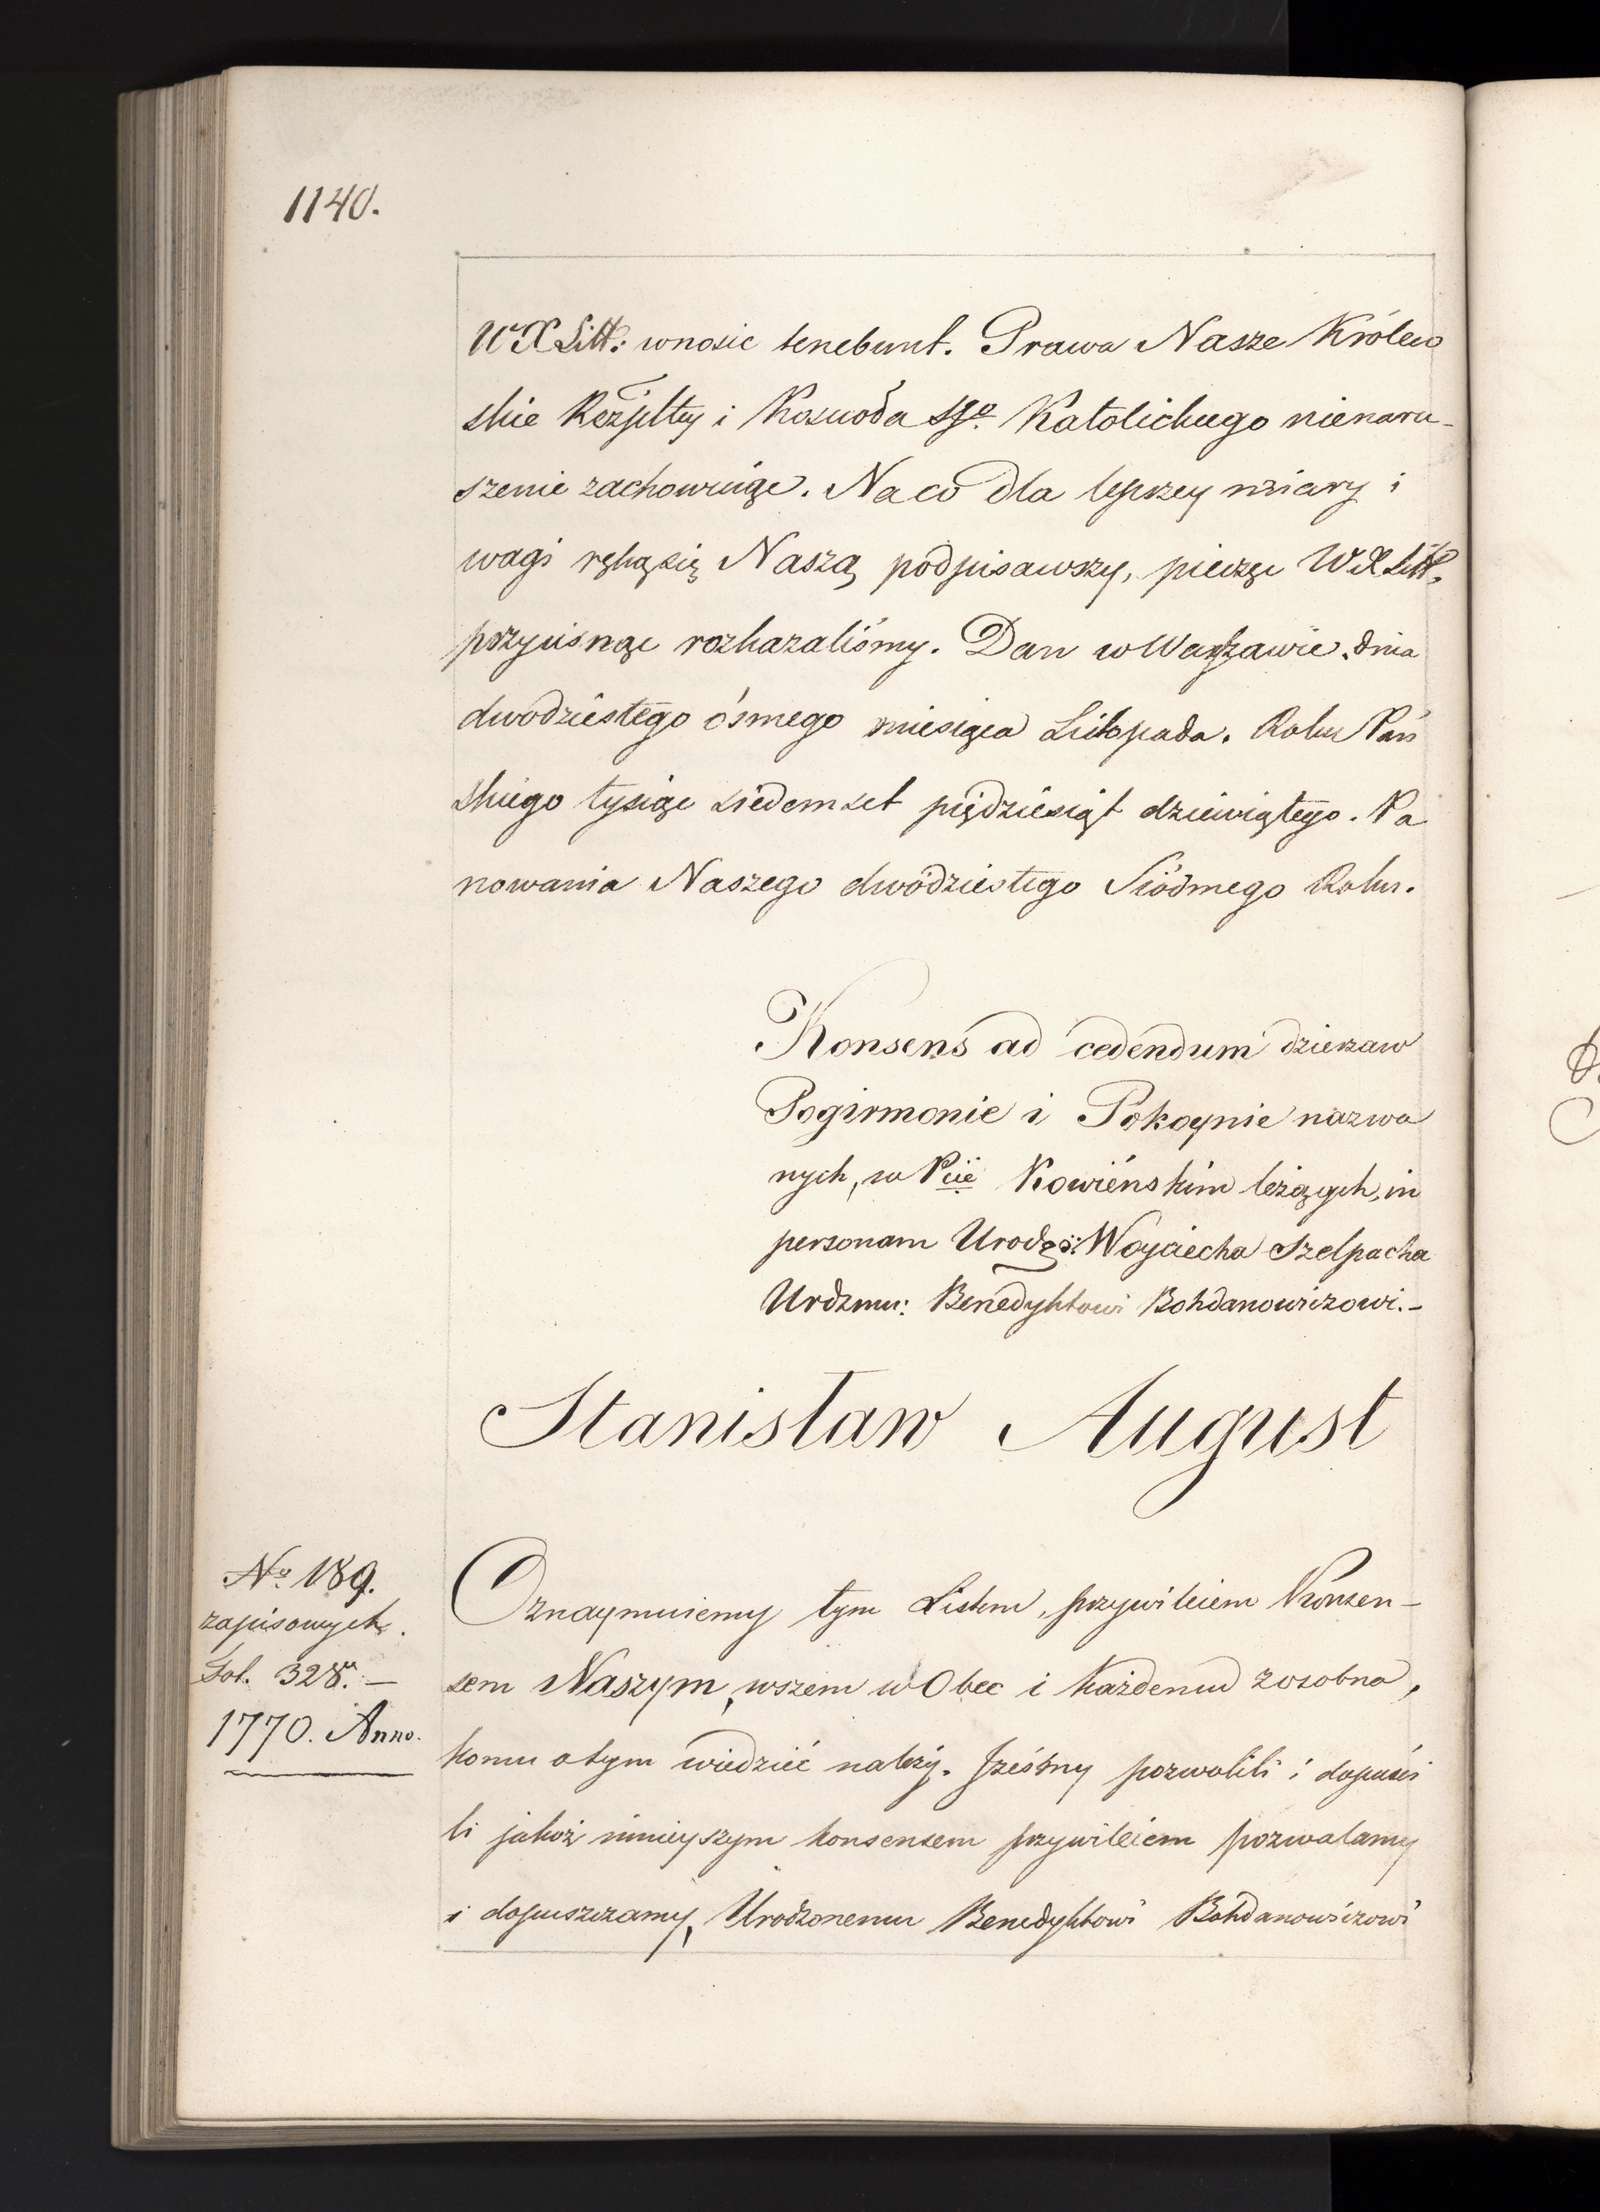 1140.
W X Litt: wnosic tenebunt. Prawa Nasze Królew
skie Rezpltey i Kosuoda Sgo Katolickiego nienaru-
szenie zachowuiąc. Na co dla lepszey wiary i
wagi ręką się Naszą podpisawszy, pieczęc W X Litt.
przycisnąc rozkazalismy. Dan w Warszawie. dnia
dwódziestego ósmego miesiąca Listopada. Roku Pań
skiego tysiąc siedemset pięдziesiąt dziewiątego. Pa
nowania Naszego dwódziestego Siódmego Roku.
Konsens ad cedendum dzierzaw
Pogirmonie i Pokoynie nazwa
nych, w Pcie Kowieńskim leżących, in
personam Urodzo: Woyciecha Szelpacha
Urdzmu: Benedyktowi Bohdanowiczowi.-
Stanisław August
No 189.
zapisowych.
Fol. 328. -
1770. Anno.
Oznaymuiemy tym Listem, przywileiem Konsen-
sem Naszym, wszem w Obec i każdemu zosobna,
komu o tym wiedzieć należy. Iześmy pozwolili i dopuści
li jakoż ninieyszym konsensem przywileiem pozwalamy
i dopuszczamy, Urodzonemu Benedyktowi Bohdanowiczowi